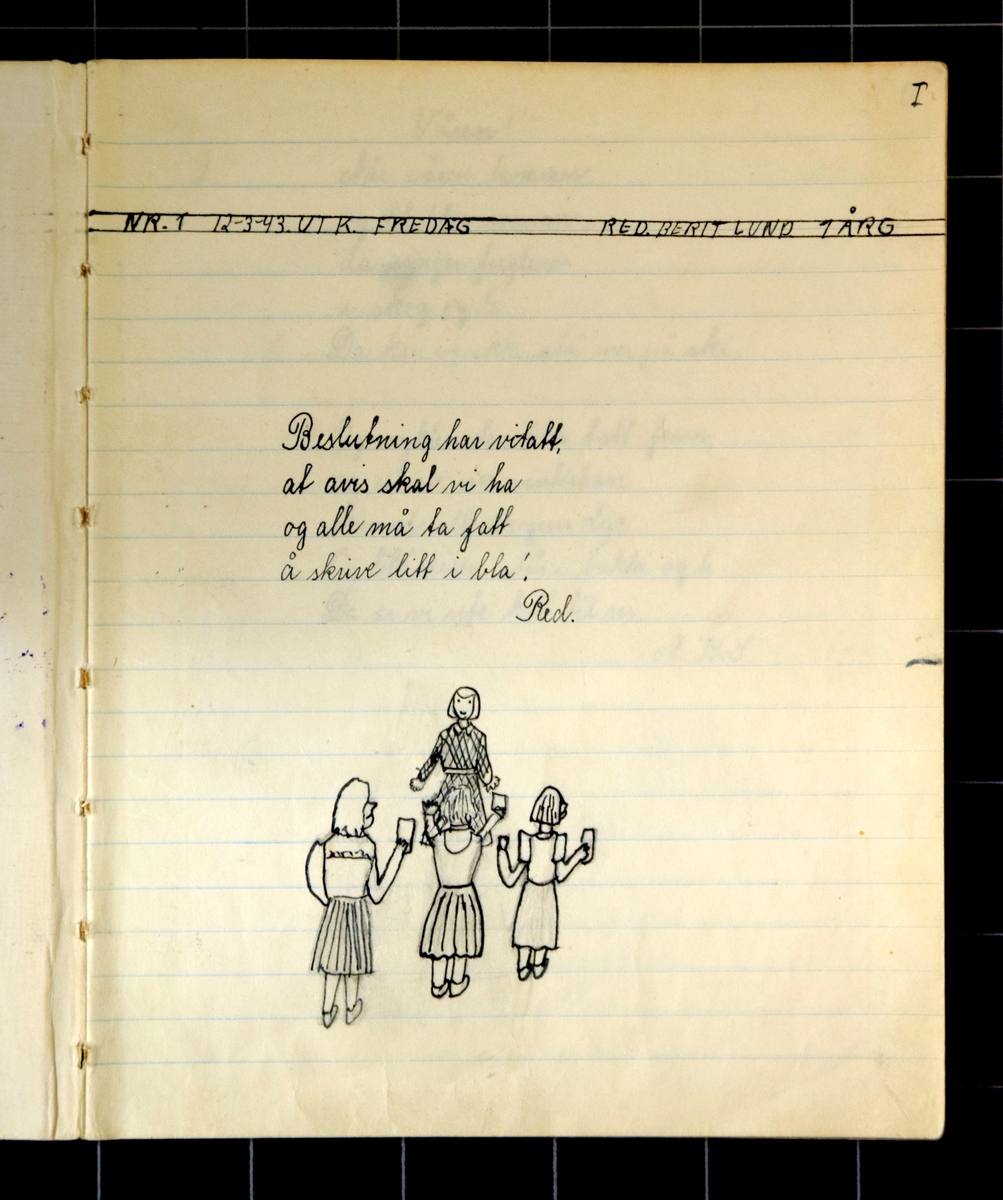 I
NR. 1 12-3-43. UTK. FREDAG RED. BERIT LUND 1 ÅRG
Beslutning har vi tatt,
at avis skal vi ha
og alle må ta fatt
å skrive litt i bla'.
Red.